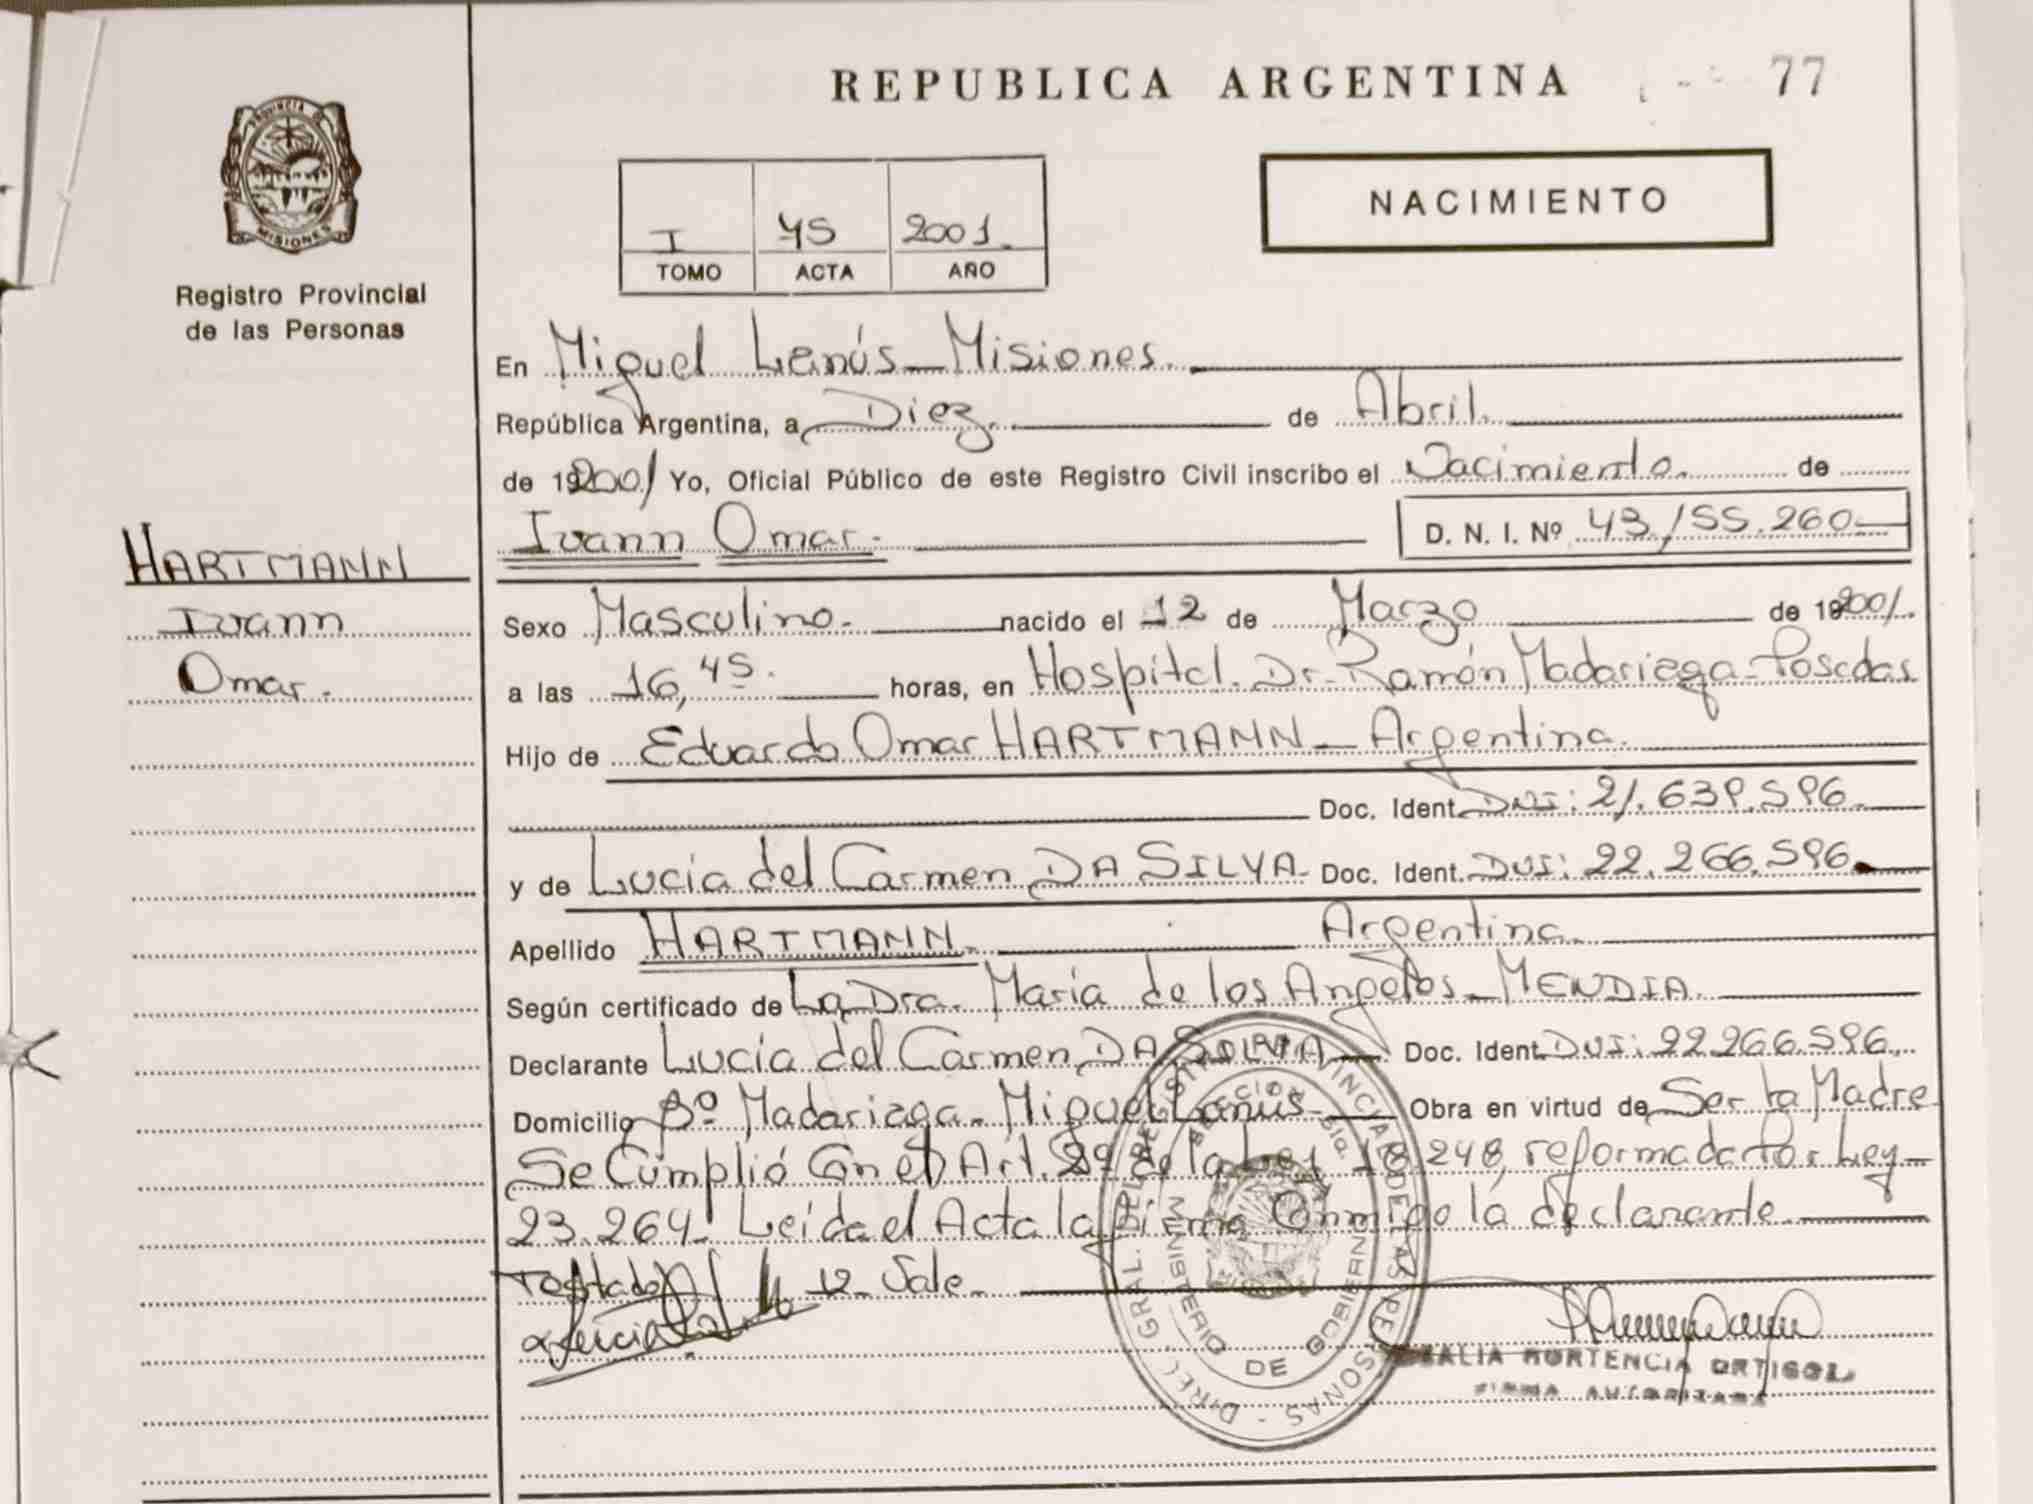 REPUBLICA ARGENTINA 77
PROVINCIA DE MISIONES
Registro Provincial
de las Personas
NACIMIENTO
I 45 2001.
TOMO ACTA AÑO
En Miguel Lanús - Misiones.
República Argentina, a Diez. de Abril.
de 192001 Yo, Oficial Público de este Registro Civil inscribo el Nacimiento. de
Ivann Omar. D. N. I. Nº 43.155.260-
HARTMANN
Ivann
Omar.
Sexo Masculino. nacido el 12 de Marzo de 192001.
a las 16,45. horas, en Hospital. Dr. Ramón Madariaga - Posadas
Hijo de Eduardo Omar HARTMANN - Argentina.
Doc. Ident. DNI: 21.639.596.
y de Lucia del Carmen DA SILVA - Doc. Ident. DNI: 22.266.596.
Apellido HARTMANN. Argentina.
Según certificado de La Dra. María de los Angeles - MENDIA.
Declarante Lucía del Carmen DA SILVA - Doc. Ident. DNI: 22.266.596.
Domicilio Bº Madariaga - Miguel Lanús - Obra en virtud de Ser La Madre
Se Cumplió Con el Art. 2º de la Ley 18.248, reformada Por Ley -
23.264 - Leída el Acta la Firma Conmigo la declarante.
Testado 12 - Vale.
DIREC. GRAL. DEL REGISTRO PROVINCIAL DE LAS PERSONAS -
MINISTERIO DE GOBIERNO
HORTENCIA
FIRMA AUTORIZADA